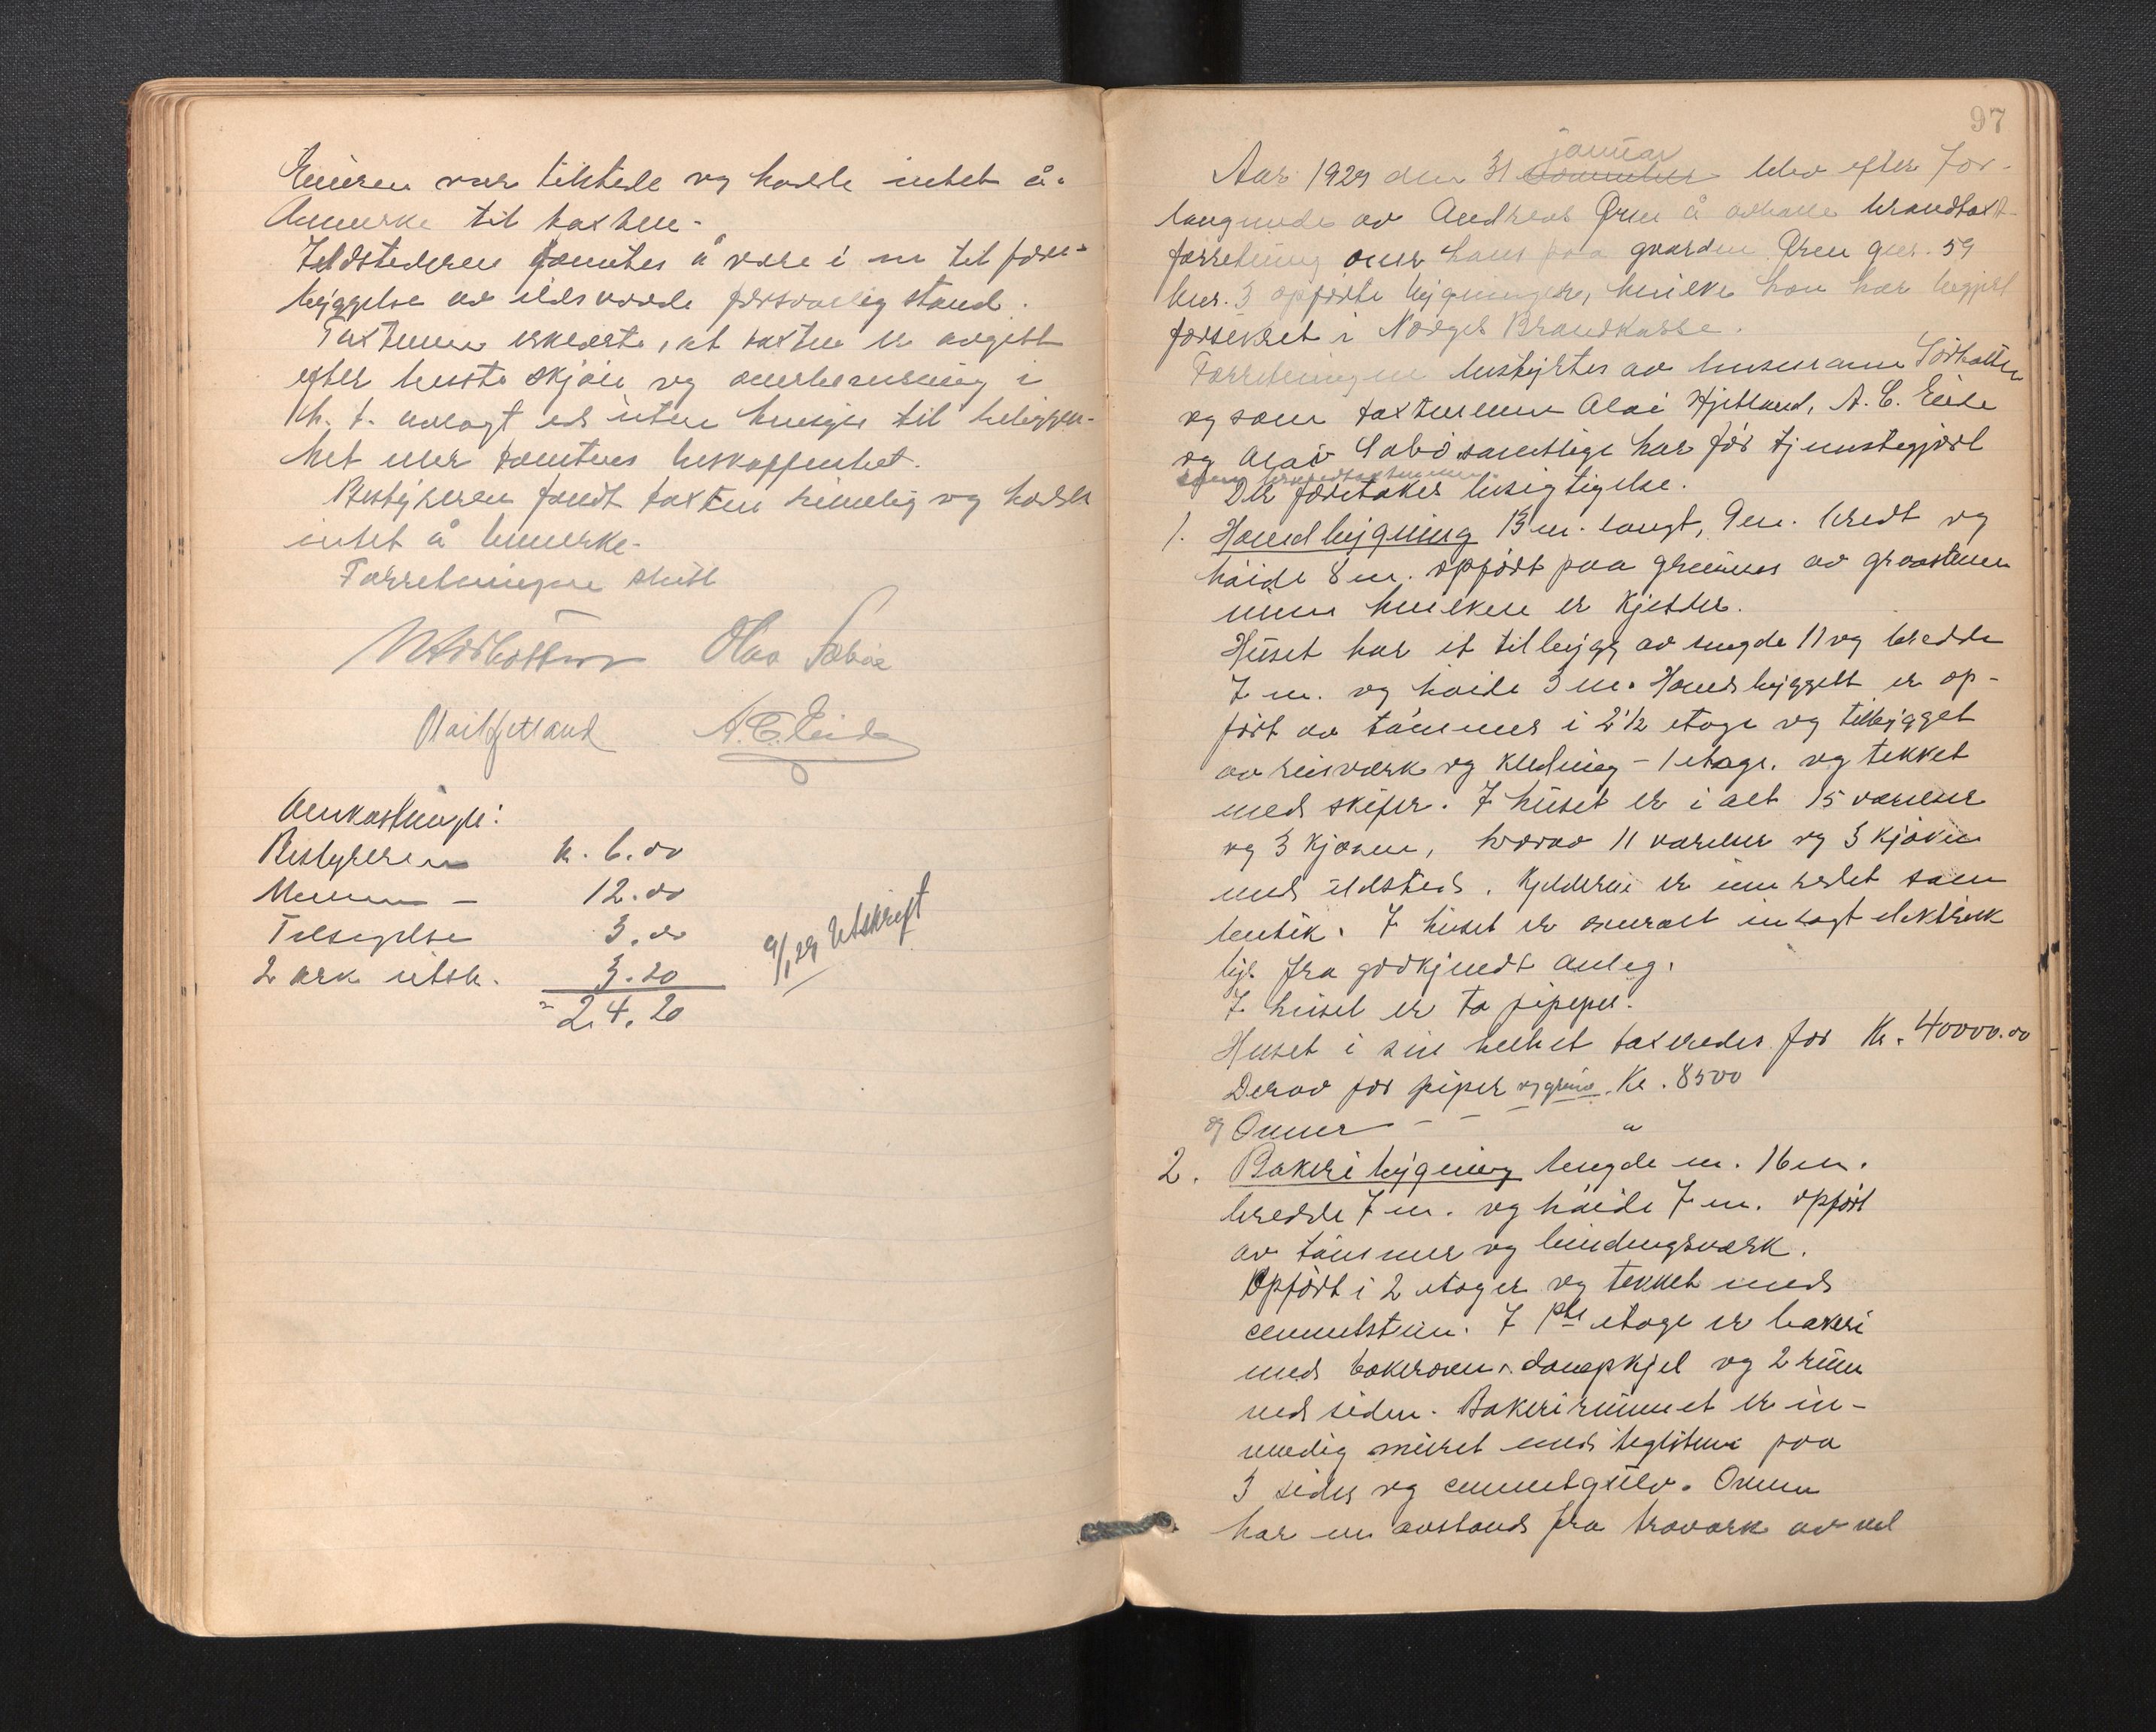 Eieren var tilstede og hadde intet å
bemerke til taxten.
Ildstederen fantes å være i en til fore-
byggelse av ildsvaade forsvarlig stand.
Taxtmenn erklærte, at taxten er avgitt
efter beste skjøn og overbevisning i
h. t. avlagt ed uten hensyn til beliggen-
het eller tomtens beskaffenhet.
Bestyreren fandt taxten rimelig og hadde
intet å bemerke.
Forretningen slutt
Olav Sæbøe
Olai Hjetland A. C. Eide
Omkostninger:
Bestyreren k. 6.00
Menn — 12.00
Tilsigelse 3.00
2 ark utsk. 3.20
= 24.20
9/1 29 Utskrift
97
januar
Aar 1929 den 31 blev efter for-
langende av Andreas Øren å avholde brandtaxt-
forretning over hans paa gaarden Øren gnr. 59
bnr. 3 opførte bygninger, hvilke han har begjært
forsikret i Norges Brandkasse.
Forretningen bestyrtes av lensmann Sörbotten
og som taxtmenn Olai Hjetland, A. C. Eide
og Olav Sæbö samtlige har før tjenstegjort
som brandtaxtmenn.
Der foretokes besigtigelse.
1. Hovedbygning 13 m. langt, 9 m. bredt og
höide 8 m. opført paa grunmur av graasten
under hvilken er kjelder.
Huset har et tilbygg av lengde 11 og bredde
7 m. og høide 3 m. Hovedbygget er op-
ført av tømmer i 2 1/2 etage og tilbygget
av reisværk og kledning - 1 etage. og tekket
med skifer. I huset er i alt 15 værelser
og 3 kjøken, hvorav 11 værelser og 3 kjøken
med ildsted. Kjelderen er innredet som
butik. I huset er overalt inlagt elektrisk
lys fra godkjendt anleg.
I huset er to pipeper.
Huset i sin helhet taxeredes for Kr. 40000.00
Derav for piper og grunm. Kr. 8500
og Ovner — — "
2. Bakeribygning lengde m. 16 m.
bredde 7 m. og høide 7 m. opført
av tømmer og bindingsværk.
Opført i 2 etager og tekket med
cementsten. I 1ste etage er bakeri
med bakerovn, dampkjel og 2 rum
ved siden. Bakerirummet er in-
vendig muret med teglsten paa
3 sider og cementgulv. Ovnen
har en avstand fra traværk av vel